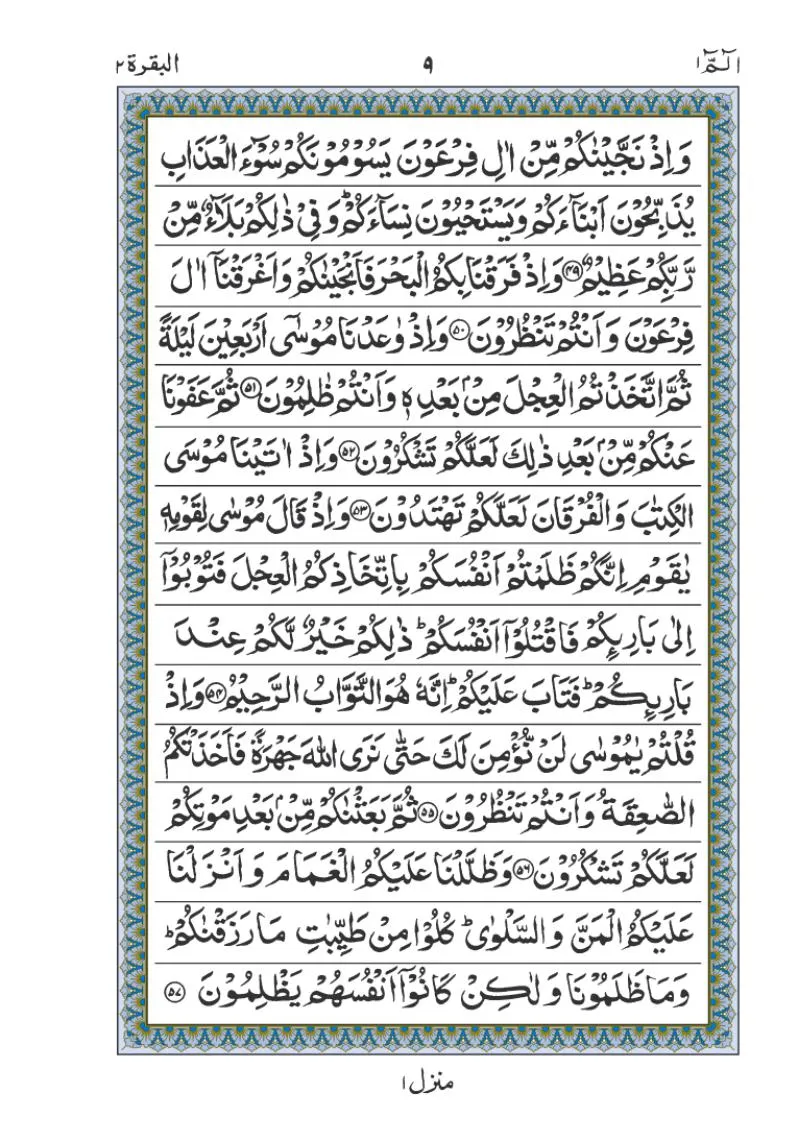 الٓمّٓ ١
٩
البقرة ٢
وَاِذْ نَجَّيْنٰكُمْ مِّنْ اٰلِ فِرْعَوْنَ يَسُوْمُوْنَكُمْ سُوْٓءَ الْعَذَابِ
يُذَبِّحُوْنَ اَبْنَآءَكُمْ وَيَسْتَحْيُوْنَ نِسَآءَكُمْ ؕ وَفِيْ ذٰلِكُمْ بَلَآءٌ مِّنْ
رَّبِّكُمْ عَظِيْمٌ ﴿۴۹﴾ وَاِذْ فَرَقْنَا بِكُمُ الْبَحْرَ فَاَنْجَيْنٰكُمْ وَاَغْرَقْنَآ اٰلَ
فِرْعَوْنَ وَاَنْتُمْ تَنْظُرُوْنَ ﴿۵۰﴾ وَاِذْ وٰعَدْنَا مُوْسٰٓى اَرْبَعِيْنَ لَيْلَةً
ثُمَّ اتَّخَذْتُمُ الْعِجْلَ مِنْۢ بَعْدِهٖ وَاَنْتُمْ ظٰلِمُوْنَ ﴿۵۱﴾ ثُمَّ عَفَوْنَا
عَنْكُمْ مِّنْۢ بَعْدِ ذٰلِكَ لَعَلَّكُمْ تَشْكُرُوْنَ ﴿۵۲﴾ وَاِذْ اٰتَيْنَا مُوْسَى
الْكِتٰبَ وَالْفُرْقَانَ لَعَلَّكُمْ تَهْتَدُوْنَ ﴿۵۳﴾ وَاِذْ قَالَ مُوْسٰى لِقَوْمِهٖ
يٰقَوْمِ اِنَّكُمْ ظَلَمْتُمْ اَنْفُسَكُمْ بِاتِّخَاذِكُمُ الْعِجْلَ فَتُوْبُوْٓا
اِلٰى بَارِئِكُمْ فَاقْتُلُوْٓا اَنْفُسَكُمْ ؕ ذٰلِكُمْ خَيْرٌ لَّكُمْ عِنْدَ
بَارِئِكُمْ ؕ فَتَابَ عَلَيْكُمْ ؕ اِنَّهٗ هُوَ التَّوَّابُ الرَّحِيْمُ ﴿۵۴﴾ وَاِذْ
قُلْتُمْ يٰمُوْسٰى لَنْ نُّؤْمِنَ لَكَ حَتّٰى نَرَى اللّٰهَ جَهْرَةً فَاَخَذَتْكُمُ
الصّٰعِقَةُ وَاَنْتُمْ تَنْظُرُوْنَ ﴿۵۵﴾ ثُمَّ بَعَثْنٰكُمْ مِّنْۢ بَعْدِ مَوْتِكُمْ
لَعَلَّكُمْ تَشْكُرُوْنَ ﴿۵۶﴾ وَظَلَّلْنَا عَلَيْكُمُ الْغَمَامَ وَاَنْزَلْنَا
عَلَيْكُمُ الْمَنَّ وَالسَّلْوٰى ؕ كُلُوْا مِنْ طَيِّبٰتِ مَا رَزَقْنٰكُمْ ؕ
وَمَا ظَلَمُوْنَا وَلٰكِنْ كَانُوْٓا اَنْفُسَهُمْ يَظْلِمُوْنَ ﴿۵۷﴾
منزل ١